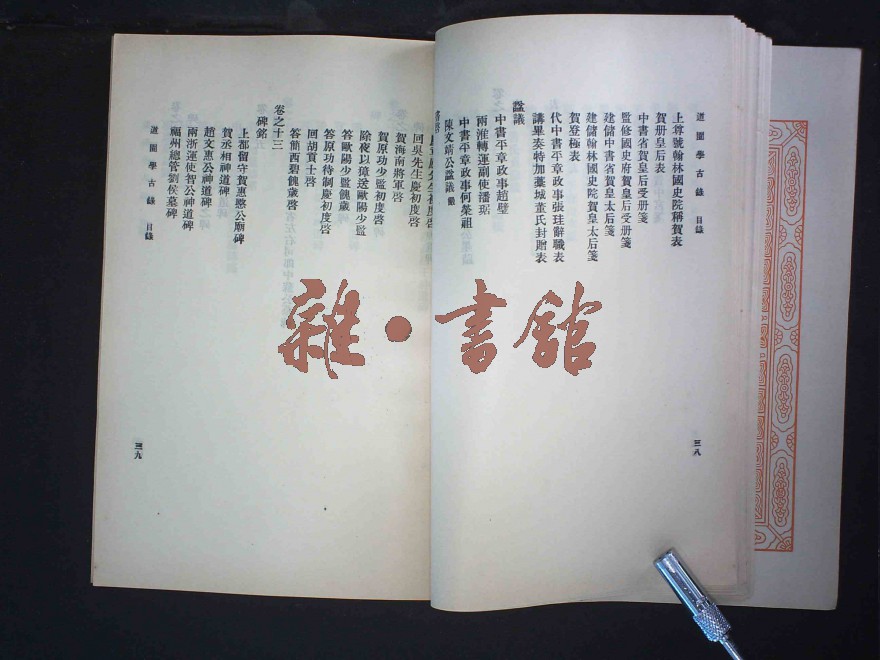 道園學古錄 目錄
上尊號翰林國史院稱賀表
賀册皇后表
中書省賀皇后受册箋
監修國史府賀皇后受册箋
建儲中書省賀皇太后箋
建儲翰林國史院賀皇太后箋
賀登極表
代中書平章政事張珪辭職表
講畢奏特加藁城董氏封贈表
諡議
中書平章政事趙璧
兩淮轉運副使潘琚
中書平章政事何榮祖
陳文靖公諡議
書啓
三八
初度啓
回吳先生慶初度啓
賀海南將軍啓
賀原功少監初度啓
除夜以獐送歐陽少監
答歐陽少監餽歲
答原功待制慶初度啓
回胡貢士啓
答簡西碧餽歲啓
卷之十三
碑銘
上都留守賀惠愍公廟碑
賀丞相神道碑
趙文惠公神道碑
兩浙運使智公神道碑
福州總管劉侯墓碑
道園學古錄 目錄
三九
雜•書館